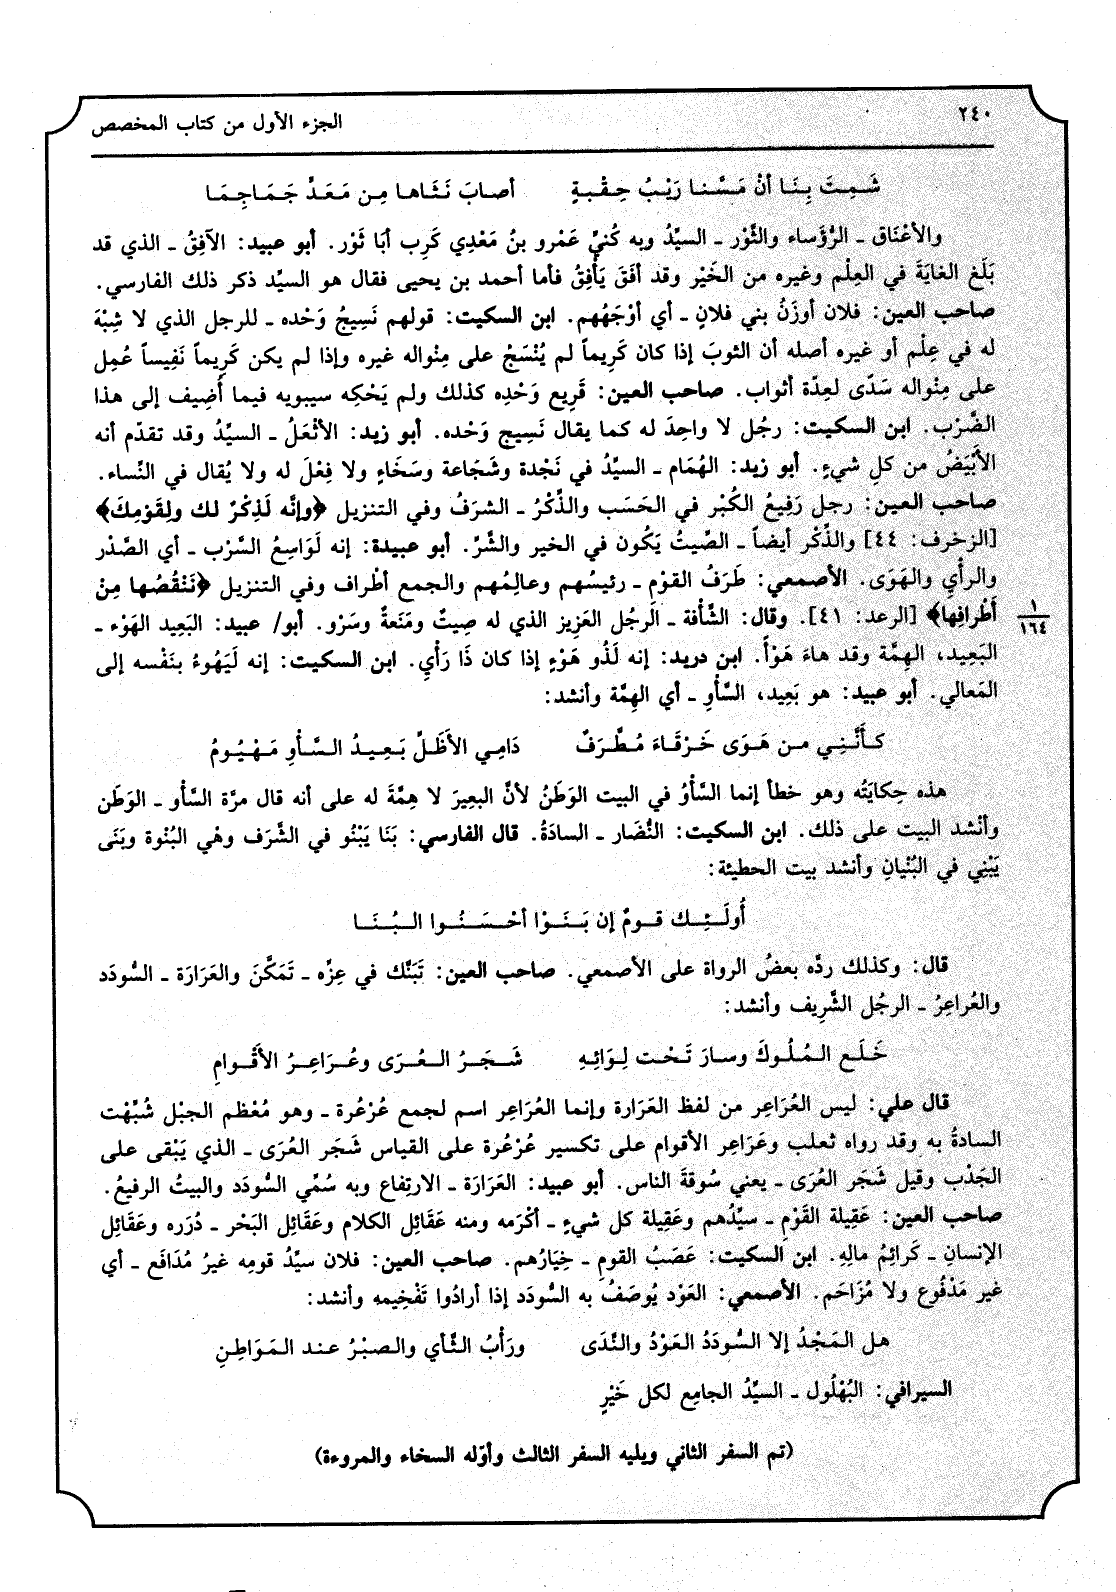 ٢٤٠
الجزء الأول من كتاب المخصص
شَمِتَ بِنَا أنْ مَسَّنا رَيْبُ حِقْبةٍ أصابَ نَثَاها مِن مَعَدِّ جَمَاجِمَا
والأعْنَاق ـ الرُّؤَساء والثَّوْر ـ السيِّدُ وبه كُنيَّ عَمْرو بنُ مَعْدِي كَرِب أبَا ثَوْر. أبو عبيد: الآفِقُ ـ الذي قد
بَلَغ الغايَةَ في العِلْم وغيره من الخَيْر وقد أفَقَ يَأْفِقُ فأما أحمد بن يحيى فقال هو السيِّد ذكر ذلك الفارسي.
صاحب العين: فلان أوزَنُ بني فلانٍ ـ أي أوْجَهُهم. ابن السكيت: قولهم نَسِيجُ وَحْده ـ للرجل الذي لا شِبْهَ
له في عِلْم أو غيره أصله أن الثوبَ إذا كان كَرِيماً لم يُنْسَجْ على مِنْواله غيره وإذا لم يكن كَرِيماً نَفِيساً عُمِل
على مِنْواله سَدًى لعِدّة أثواب. صاحب العين: قَرِيع وَحْدِه كذلك ولم يَحْكِه سيبويه فيما أُضِيف إلى هذا
الضَّرْب. ابن السكيت: رجُل لا واحِدَ له كما يقال نَسِيج وَحْده. أبو زيد: الأثْعَلُ ـ السيِّدُ وقد تقدّم أنه
الأَبْيَضُ من كلِ شيءٍ. أبو زيد: الهُمَام ـ السيِّدُ في نَجْدة وشَجَاعة وسَخَاءٍ ولا فِعْلَ له ولا يُقال في النِّساء.
صاحب العين: رجل رَفِيعُ الكُبْر في الحَسَب والذِّكْرُ ـ الشرَفُ وفي التنزيل ﴿وإنَّه لَذِكْرٌ لك ولِقَوْمِكَ﴾
[الزخرف: ٤٤] والذِّكْر أيضاً ـ الصِّيتُ يَكُون في الخير والشَّرِّ. أبو عبيدة: إنه لَوَاسِعُ السَّرْب ـ أي الصَّدْر
والرأْيِ والهَوَى. الأصمعي: طَرَفُ القوْمِ ـ رئيسُهم وعالِمُهم والجمع أطْراف وفي التنزيل ﴿نَنْقُصُها مِنْ
أَطْرافِها﴾ [الرعد: ٤١]. وقال: الشَّأْفة ـ الرجُل العَزِيز الذي له صِيتٌ ومَنَعةٌ وسَرْو. أبو/ عبيد: البَعِيد الهَوْء ـ
١
١٦٤
البَعِيد، الهِمَّة وقد هاءَ هَوْأً. ابن دريد: إنه لَذُو هَوْءٍ إذا كان ذَا رَأْيٍ. ابن السكيت: إنه لَيَهُوءُ بنَفْسه إلى
المَعالي. أبو عبيد: هو بَعِيد، السَّأْوِ ـ أي الهِمَّة وأنشد:
كـأَنَّـنِـي مـن هَـوَى خَـرْقـاءَ مُـطَّـرَفٌ دَامِي الأظَلِّ بَعِيدُ السَّأوِ مَهْيُومُ
هذه حِكايَتُه وهو خطأ إنما السَّأْوُ في البيت الوَطَنُ لأنَّ البعِيرَ لا هِمَّةَ له على أنه قال مرَّة السَّأو ـ الوَطَن
وأنْشد البيت على ذلك. ابن السكيت: النُّضَار ـ السادَةُ. قال الفارسي: بَنَا يَبْنُو في الشَّرَف وهْي البُنْوة وبَنَى
يَبْنِي في البُنْيانِ وأنشد بيت الحطيئة:
أُولَـئِـك قـومٌ إن بَـنَـوْا أحْـسَـنُـوا الـبُـنَـا
قال: وكذلك ردَّه بعضُ الرواة على الأصمعي. صاحب العين: تَبَنَّك في عِزِّه ـ تَمَكَّنَ والعَرَارَة ـ السُّودَد
والعُراعِرُ ـ الرجُل الشَّرِيف وأنشد:
خَلَـع الـمُلُـوكَ وسارَ تَحْت لِوَائِهِ شَـجَـرُ الـعُـرَى وعُـرَاعِـرُ الأقْـوامِ
قال علي: ليس العُرَاعِر من لفظ العَرَارة وإنما العُرَاعِر اسم لجمع عُرْعُرة ـ وهو مُعْظم الجبْل شُبِّهْت
السادةُ به وقد رواه ثعلب وعَرَاعِر الأقوام على تكسير عُرْعُرة على القياس شَجَر العُرَى ـ الذي يَبْقى على
الجَدْب وقيل شَجَر العُرَى ـ يعني سُوقةَ الناس. أبو عبيد: العَرَارَة ـ الارتِفاع وبه سُمِّي السُّودَد والبيتُ الرفيعُ.
صاحب العين: عَقِيلة القَوْمِ ـ سيِّدُهم وعَقِيلة كل شيءٍ ـ أكْرَمه ومنه عَقَائل الكلام وعَقَائل البَحْر ـ دُرَره وعَقَائل
الإنسانِ ـ كَرائِمُ مالِهِ. ابن السكيت: عَصَبُ القومِ ـ خِيَارُهم. صاحب العين: فلان سيِّدُ قومِه غيرُ مُدَافَع ـ أي
غير مَدْفُوع ولا مُزَاحَم. الأصمعي: العَوْد يُوصَفُ به السُّودَد إذا أرادُوا تَفْخِيمه وأنشد:
هـل المَجْدُ إلا السُّودَدُ العَوْدُ والنَّدَى ورَأْبُ الثَّأي والصبْرُ عند المَوَاطِنِ
السيرافي: البُهْلُول ـ السيِّدُ الجامِع لكل خَيْرٍ
(تم السفر الثاني ويليه السفر الثالث وأوّله السخاء والمروءة)